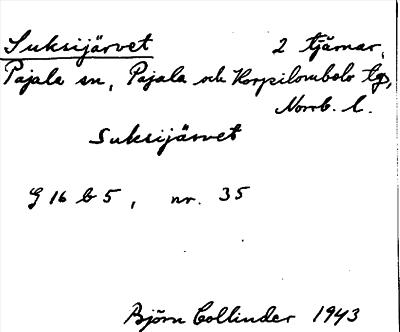 Suksijärvet 2 tjärnar,
Pajala sn, Pajala och Korpilombolo tgs,
Norrb. l.
Suksijärvet
G 16 b 5, nr. 35
Björn Collinder 1943